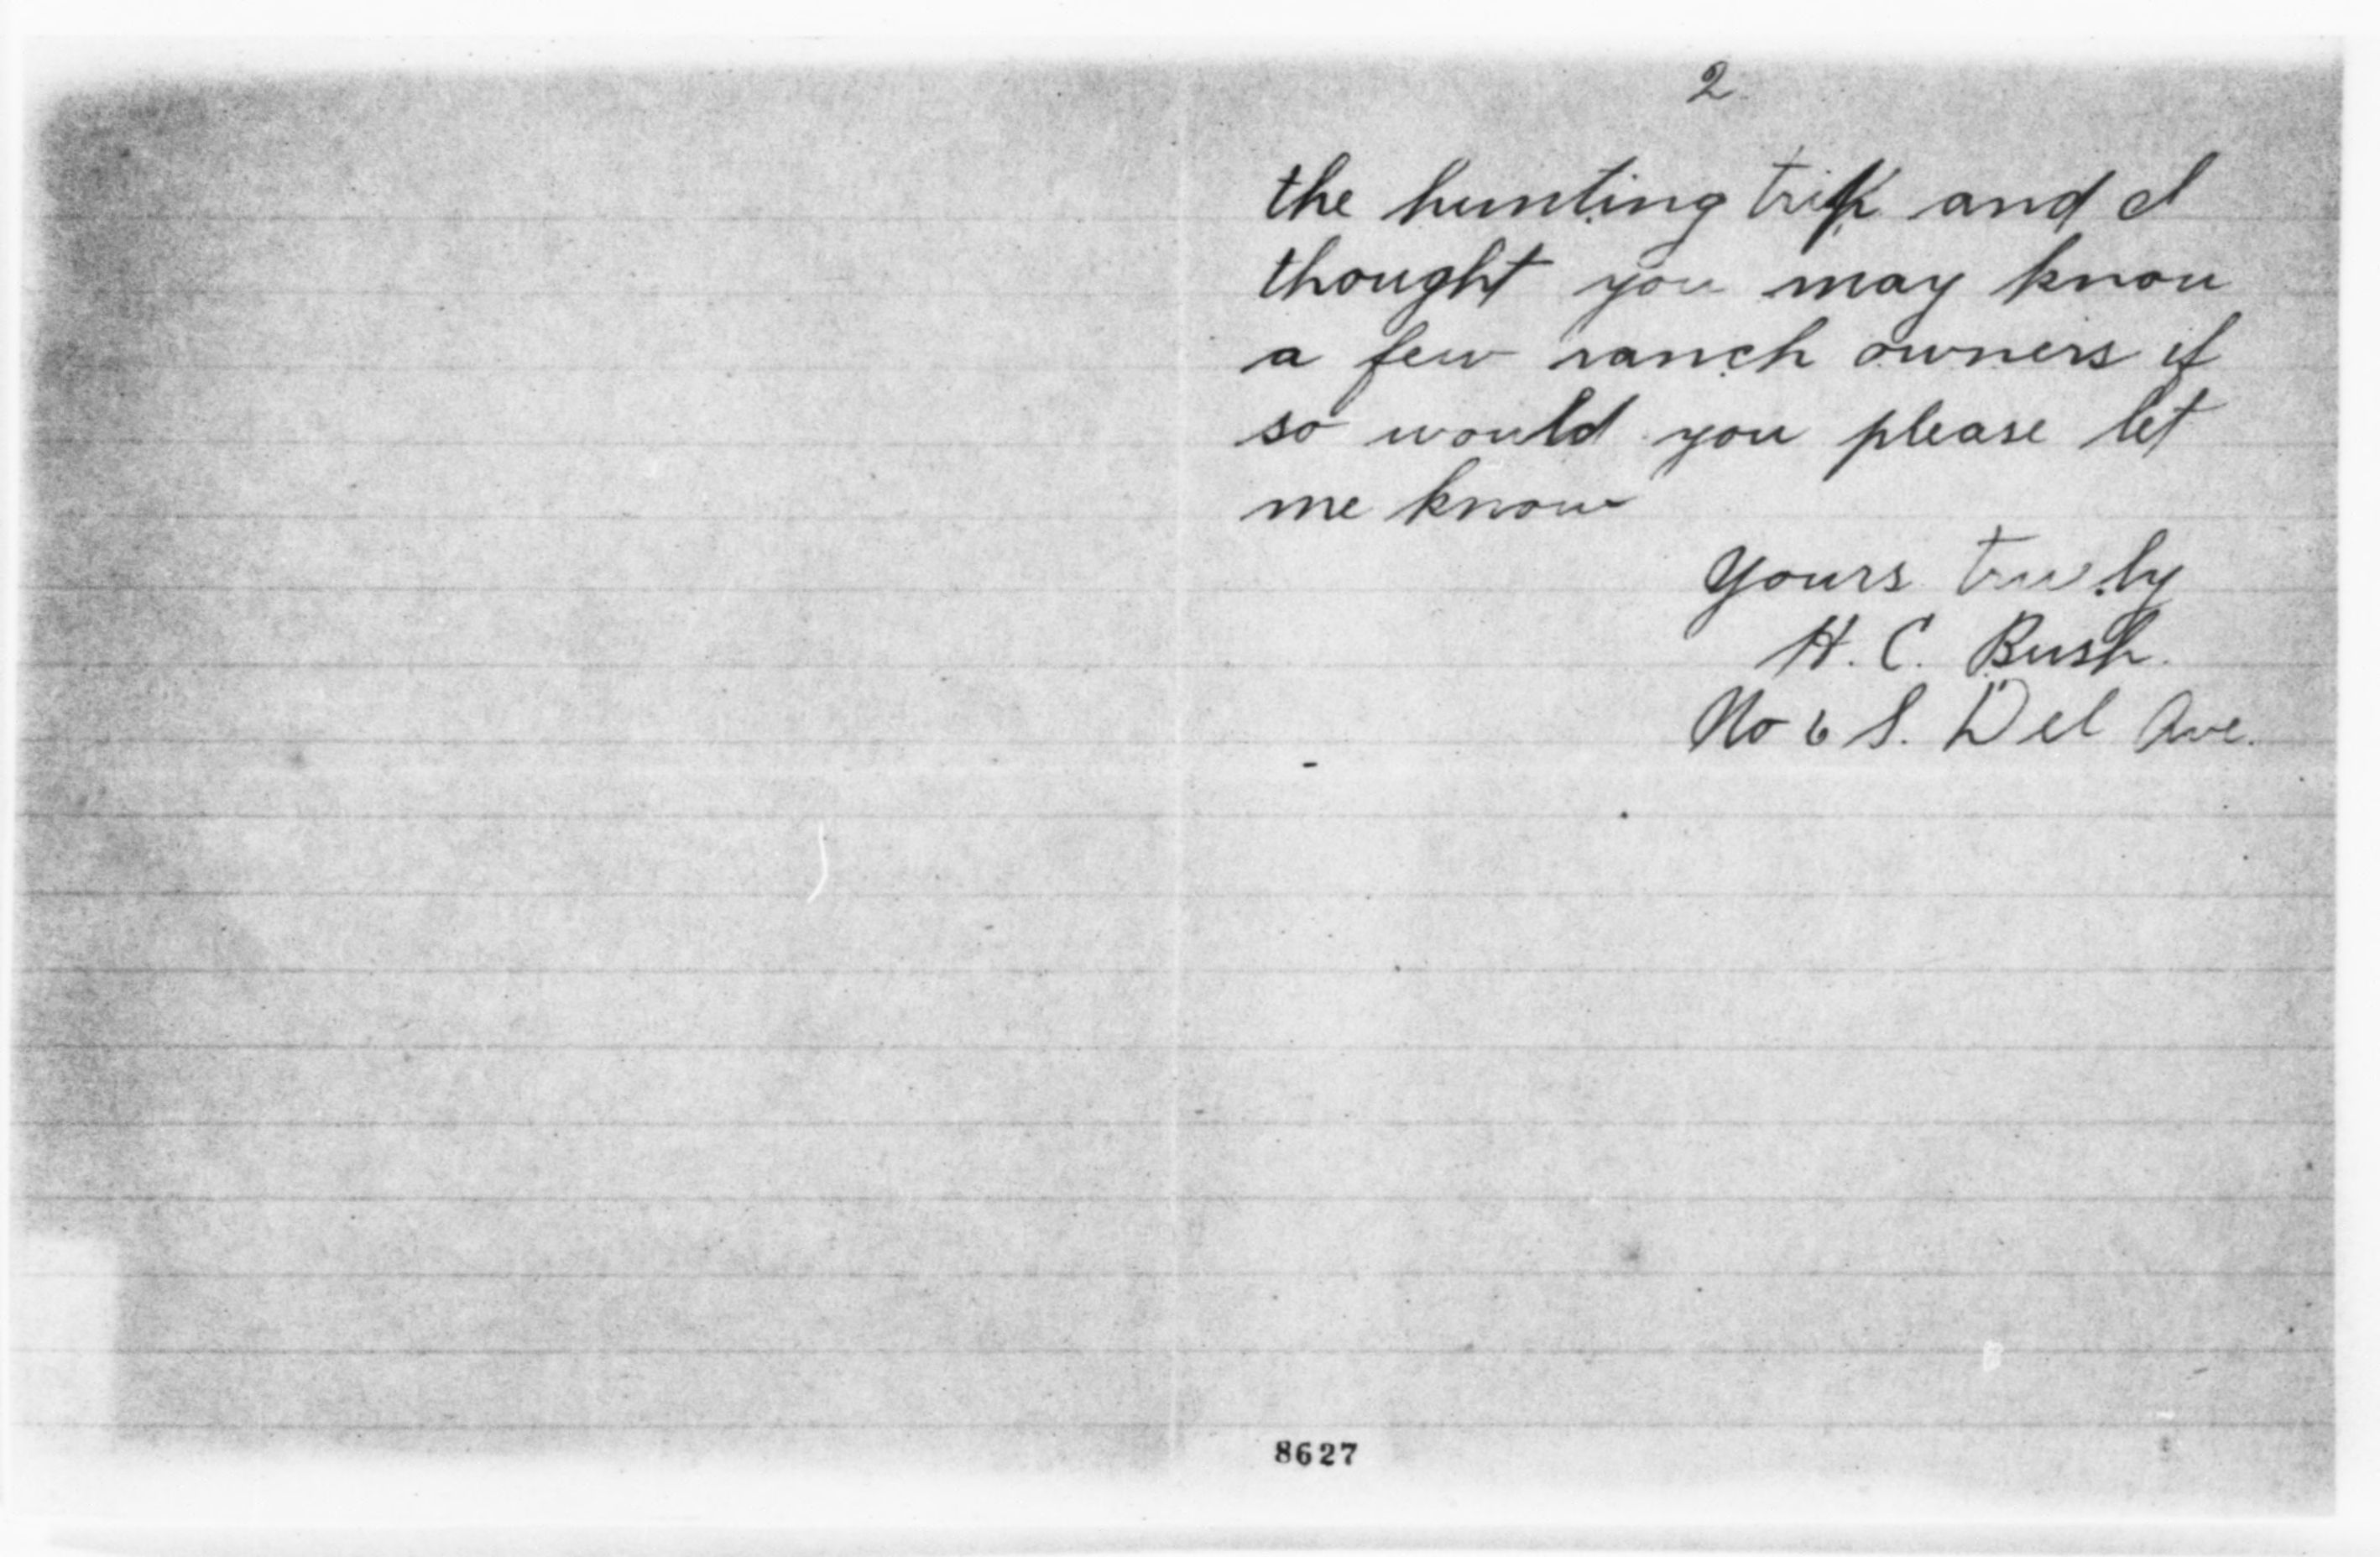 2
the hunting trip and I
thought you may know
a few ranch owners if
so would you please let
me know
Yours truely
H. C. Bush.
No 6 S. Del Ave.
8627